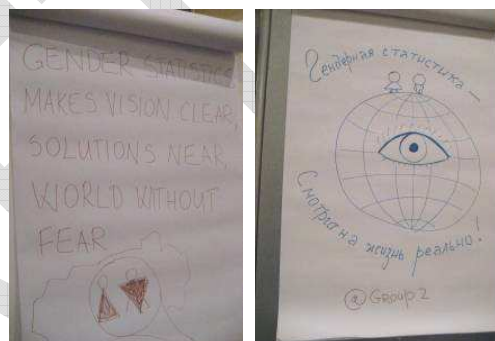 GENDER STATISTICS
MAKES VISION CLEAR,
SOLUTIONS NEAR,
WORLD WITHOUT
FEAR
Гендерная статистика —
Смотри на жизнь реально!
@ Group 2